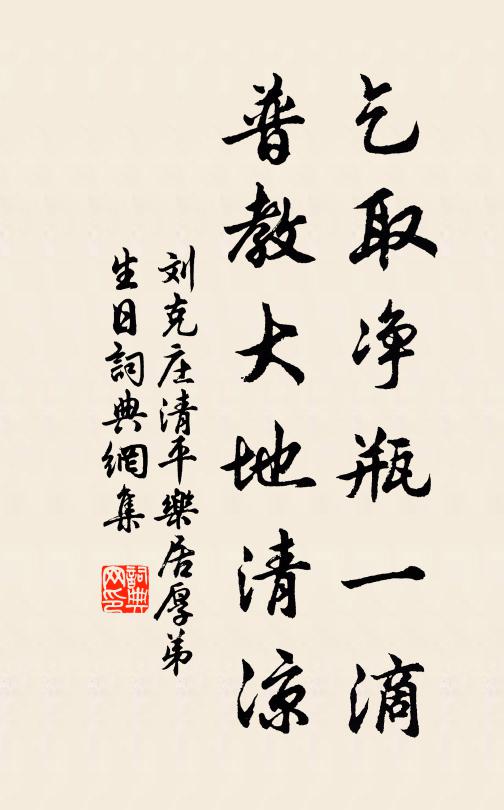 乞取净瓶一滴
普教大地清凉
刘克庄清平樂居厚弟
生日詞典網集
詞典
网印